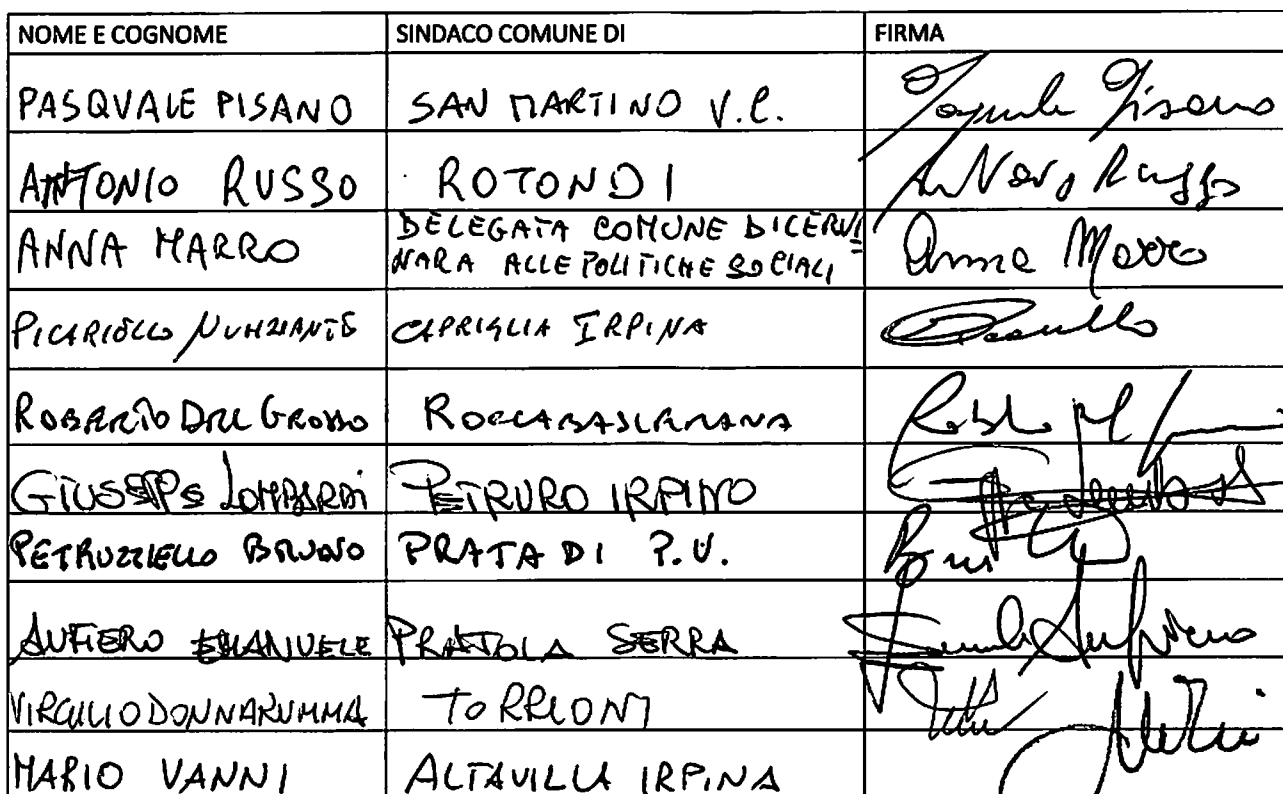 NOME E COGNOME SINDACO COMUNE DI FIRMA
PASQUALE PISANO SAN MARTINO V.C. Pasquale Pisano
ANTONIO RUSSO ROTONDI Antonio Russo
ANNA MARRO DELEGATA COMUNE DI CERVI
NARA ALLE POLITICHE SOCIALI Anna Marro
PICARIELLO NUNZIANTE CAPRIGLIA IRPINA
ROBERTO DEL GROSSO ROCCABASCERANA
GIUSEPPE LOMBARDI PETRURO IRPINO
PETRUZZIELLO BRUNO PRATA DI P.U.
AUFIERO EMANUELE PRATOLA SERRA
VIRGILIO DONNARUMMA TORRIONI
MARIO VANNI ALTAVILLA IRPINA